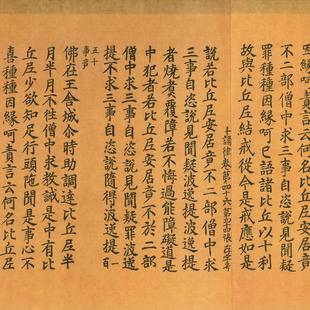 因緣呵責言云何名比丘尼
不二部僧中求三事自恣說見聞疑
罪種種因緣呵已語諸比丘以十利
故與比丘尼結戒從今是戒應如是
十誦律卷第四十六
說若比丘尼安居竟不二部僧中求
三事自恣說見聞疑波逸提波逸提
者燒煮覆障若不悔過能障礙道是
中犯者若比丘尼安居竟不於二部
僧中求三事自恣說見聞疑罪波逸
提不求三事自恣說隨得波逸提百
五十
事竟
佛在王舍城尒時助調達比丘尼半
月半月不往僧中求教誡是中有比
丘尼少欲知足行頭陁聞是事心不
喜種種因緣呵責言云何名比丘尼